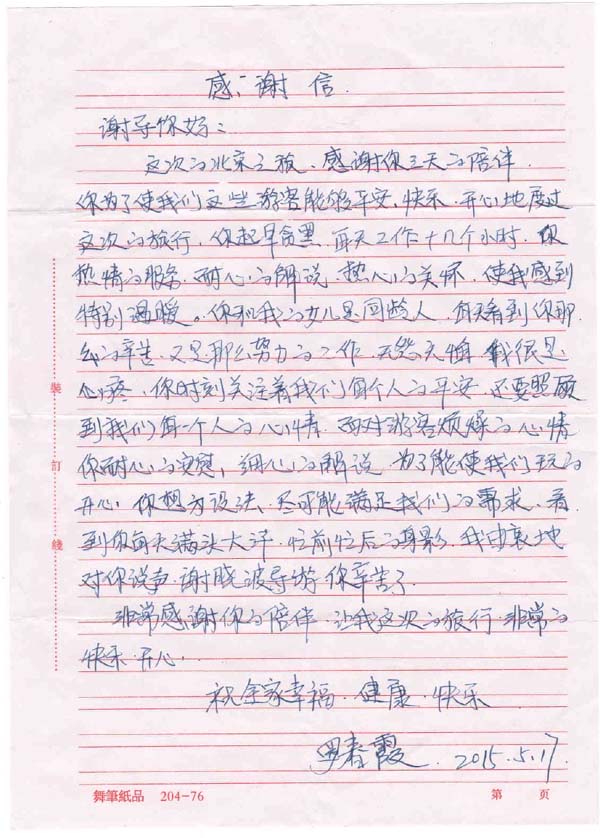 感谢信.
谢导你好:
这次的北京之旅、感谢你三天的陪伴.
你为了使我们这些游客能够平安、快乐、开心地度过
这次的旅行、你起早贪黑、每天工作十几个小时、你
热情的服务、耐心的解说、热心的关怀、使我感到
特别温暖。你和我的女儿是同龄人、每天看到你那
么的辛苦、又是那么努力的工作、无怨无悔、我很是
心疼、你时刻关注着我们每个人的平安、还要照顾
到我们每一个人的心情、面对游客烦燥的心情
你耐心的安慰、细心的解说、为了能使我们玩的
开心、你想方设法、尽可能满足我们的需求、看
到你每天满头大汗、忙前忙后的身影、我由衷地
对你说声、谢晓波导游、你辛苦了
非常感谢你的陪伴、让我这次的旅行、非常的
快乐、开心.
祝全家幸福、健康、快乐
春霞. 2015.5.17
装订线
舞筆紙品 204-76
第 页